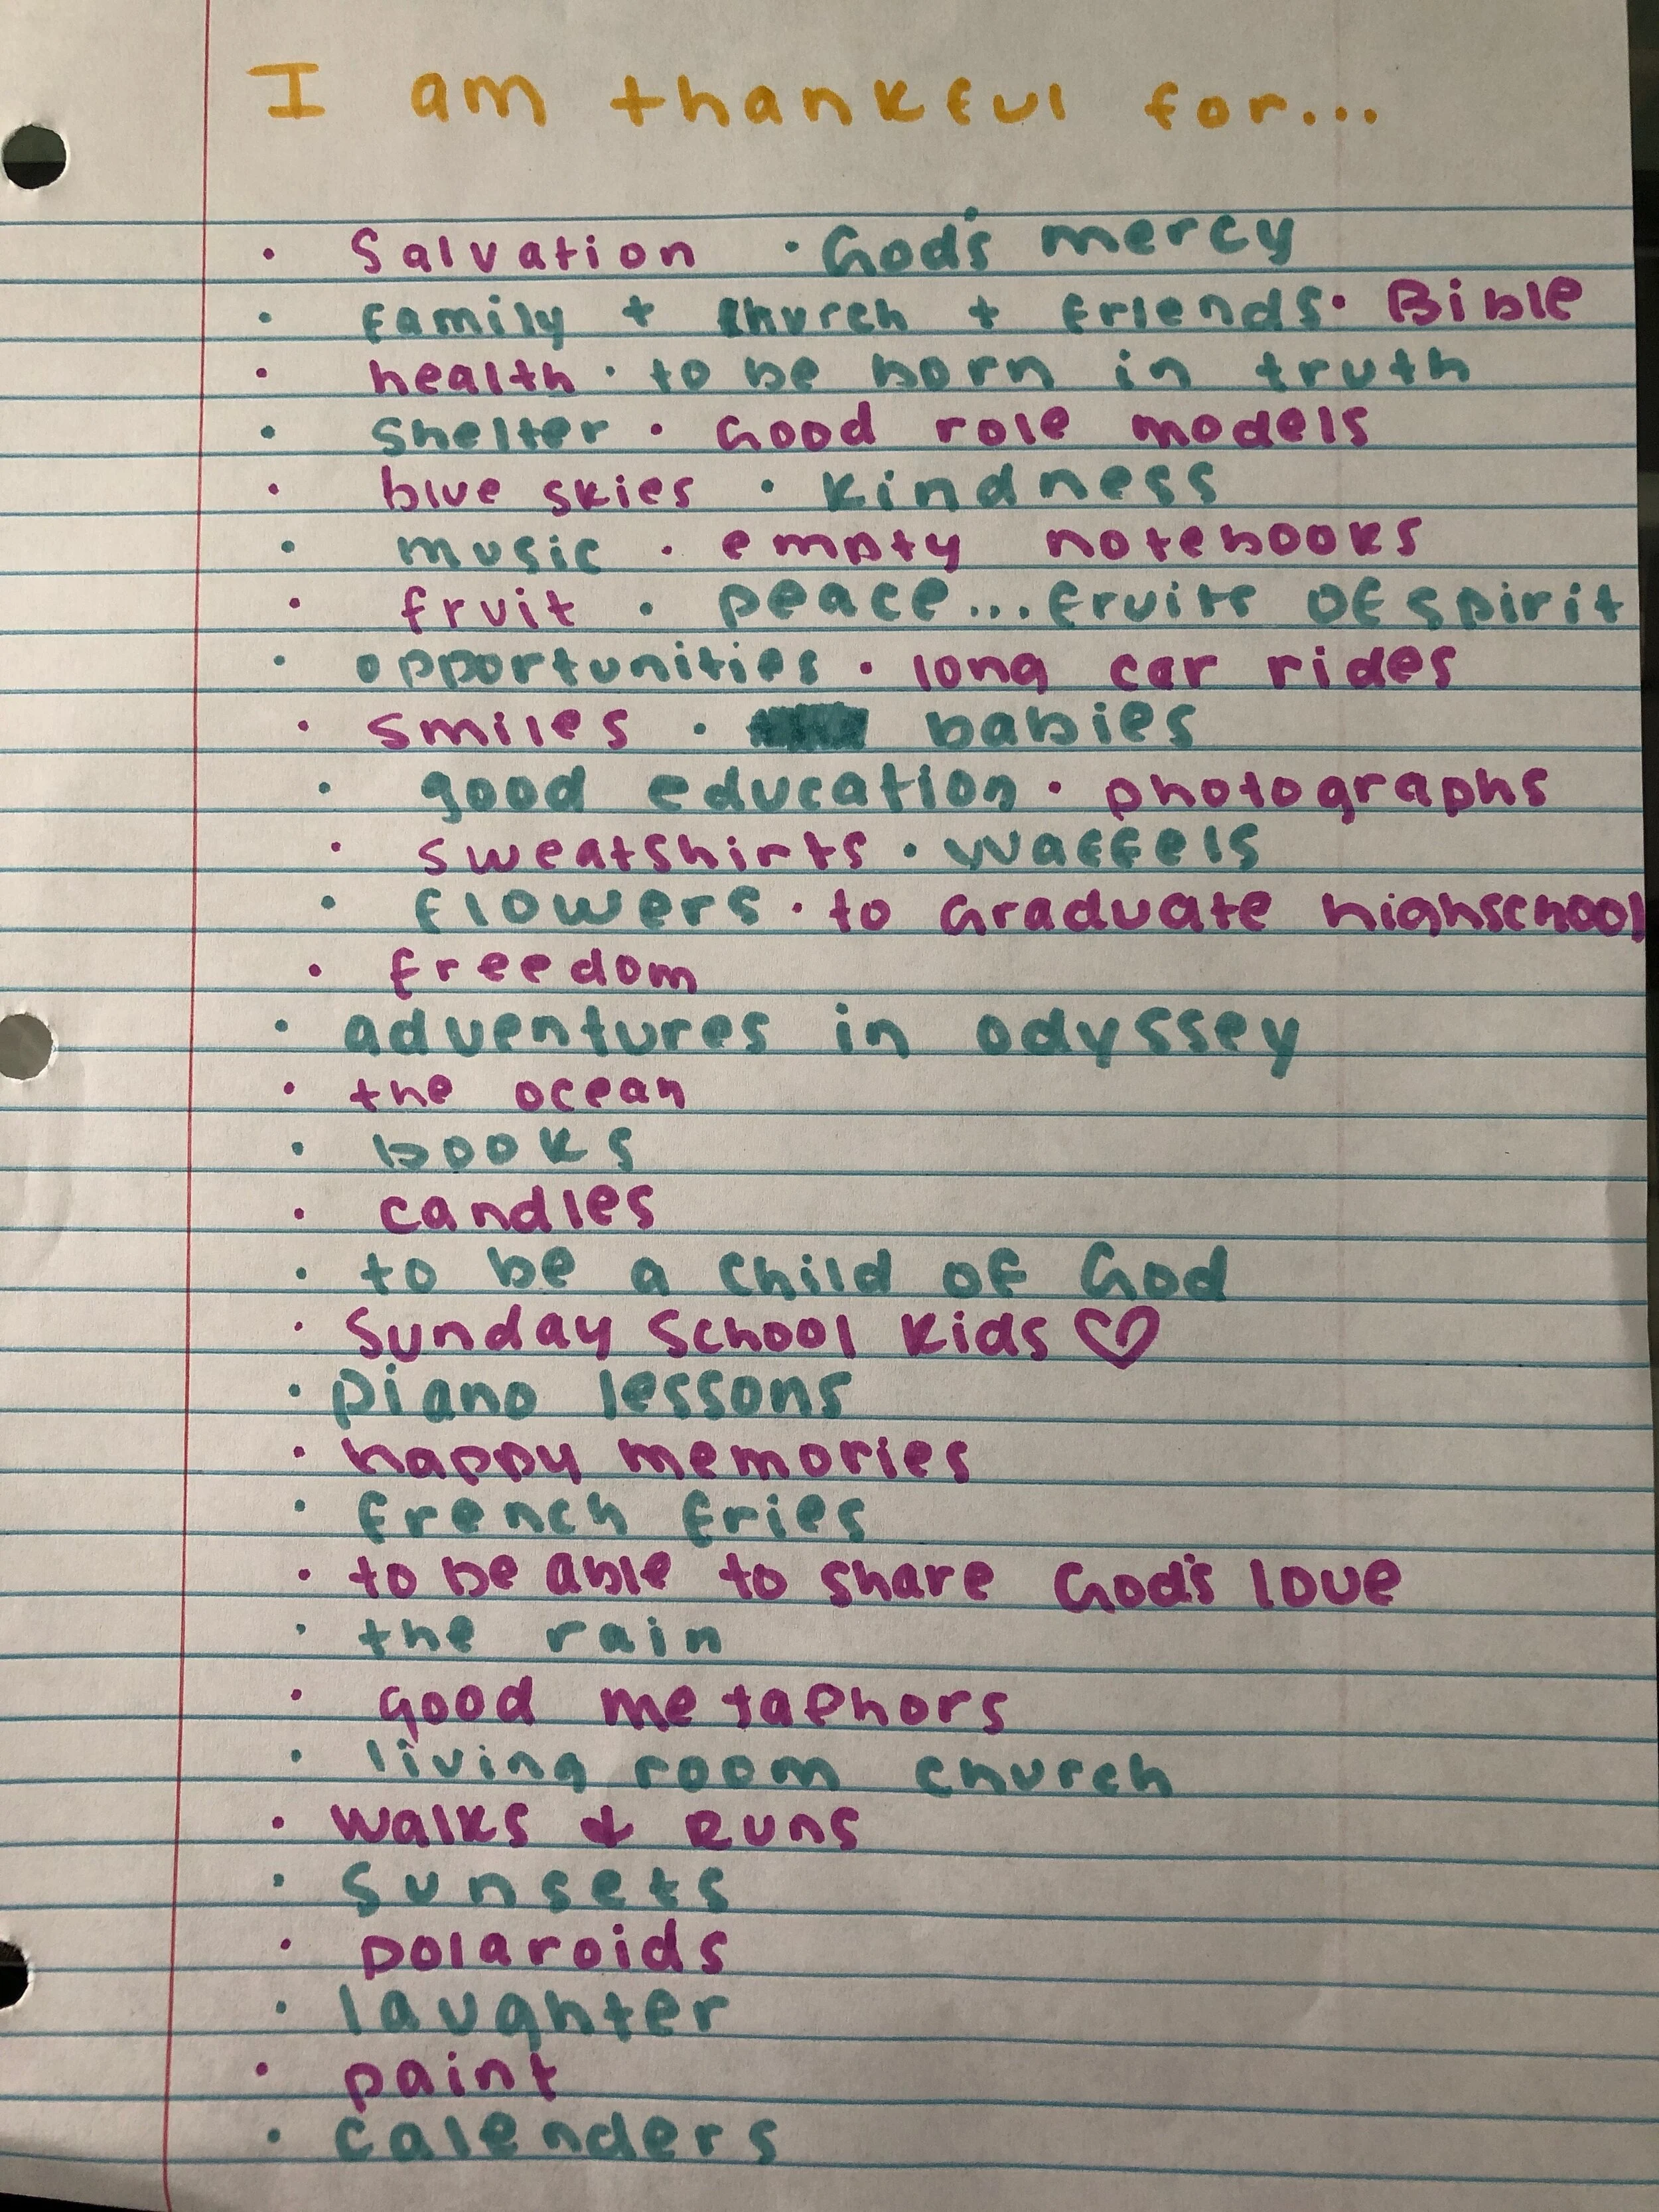 I am thankful for...
• Salvation • God's mercy
• family + church + friends • Bible
• health • to be born in truth
• shelter • Good role models
• blue skies • kindness
• music • empty notebooks
• fruit • peace... fruits of spirit
• opportunities • long car rides
• smiles • babies
• good education • photographs
• sweatshirts • waffels
• flowers • to Graduate highschool
• freedom
• adventures in odyssey
• the ocean
• books
• candles
• to be a child of God
• Sunday School kids ♡
• piano lessons
• happy memories
• french fries
• to be able to share God's love
• the rain
• good metaphors
• living room church
• walks & Runs
• sunsets
• polaroids
• laughter
• paint
• calenders